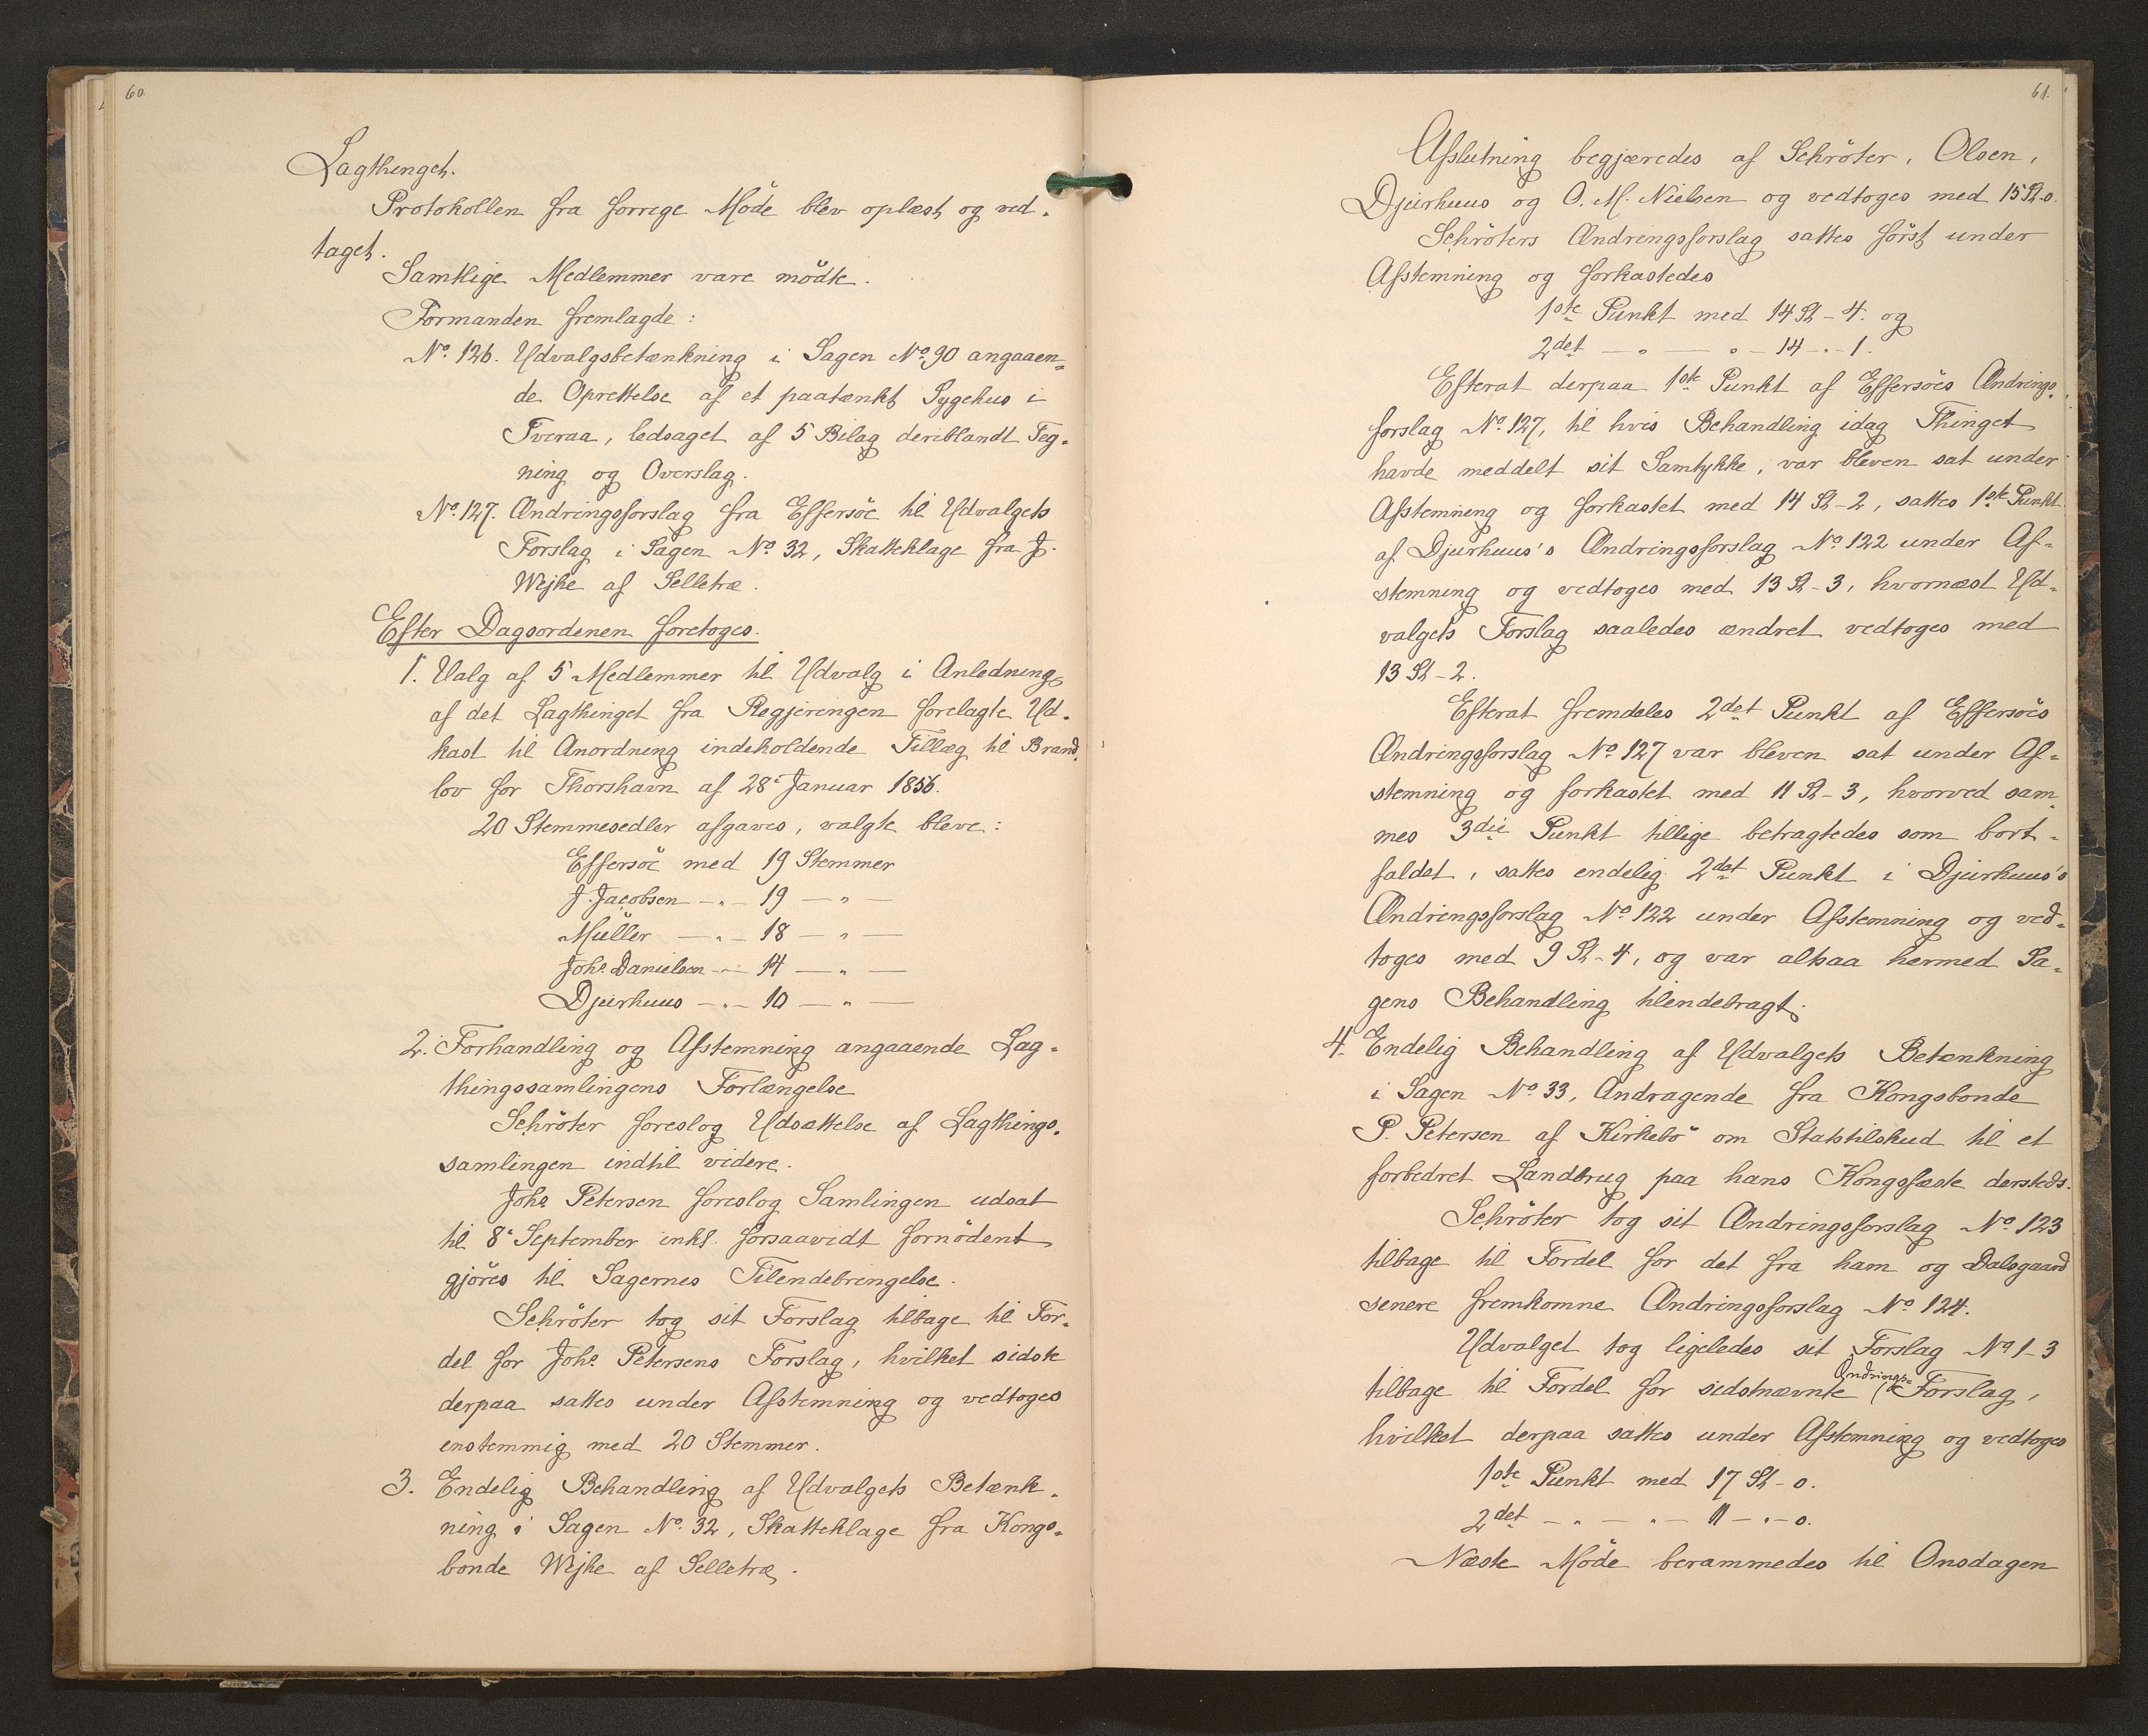 60
Lagthinget.
Protokollen fra forrige Möde blev oplæst og ved-
taget.
Samtlige Medlemmer vare mödte.
Formanden fremlagde:
No. 126. Udvalgsbetænkning i Sagen No. 90 angaaen-
de Oprettelse af et paatænkt Sygehus i
Tveraa, ledsaget af 5 Bilag deriblandt Teg-
ning og Overslag.
No. 127. Ændringsforslag fra Effersöe til Udvalgets
Forslag i Sagen No. 32, Skatteklage fra J.
Wejhe af Selletræ.
Efter Dagsordenen foretoges.
1. Valg af 5 Medlemmer til Udvalg i Anledning
af det Lagthinget fra Regjeringen forelagte Ud-
kast til Anordning indeholdende Tillæg til Brand-
lov for Thorshavn af 28. Januar 1856.
20 Stemmesedler afgaves, valgte bleve:
Effersöe med 19 Stemmer
J. Jacobsen — " — 19 — " —
Müller — " — 18 — " —
Johs. Danielsen — " — 14 — " —
Djurhuus — " — 10 — " —
2. Forhandling og Afstemning angaaende Lag-
thingssamlingens Forlængelse
Schröter foreslog Udsættelse af Lagthings-
samlingen indtil videre.
Johs. Petersen foreslog Samlingen udsat
til 8. September inkl. forsaavidt fornödent
gjöres til Sagernes Tilendebringelse.
Schröter tog sit Forslag tilbage til For-
del for Johs. Petersens Forslag, hvilket sidste
derpaa sattes under Afstemning og vedtoges
enstemmig med 20 Stemmer.
3. Endelig Behandling af Udvalgets Betænk-
ning i Sagen No. 32, Skatteklage fra Kongs-
bonde Wejhe af Selletræ.
61.
Afslutning begjæredes af Schröter, Olsen,
Djurhuus og O. M. Nielsen og vedtoges med 15 St-0.
Schröters Ændringsforslag sattes först under
Afstemning og forkastedes
1ste Punkt med 14 St - 4. og
2det — " — " — 14 - " - 1.
Efterat derpaa 1ste Punkt af Effersöes Ændrings-
forslag No. 127, til hvis Behandling idag Thinget
havde meddelt sit Samtykke, var bleven sat under
Afstemning og forkastet med 14 St-2, sattes 1ste Punkt
af Djurhuus's Ændringsforslag No. 122 under Af-
stemning og vedtoges med 13 St-3, hvornæst Ud-
valgets Forslag saaledes ændret vedtoges med
13 St-2.
Efterat fremdeles 2det Punkt af Effersöes
Ændringsforslag No. 127 var bleven sat under Af-
stemning og forkastet med 11 St-3, hvorved sam-
mes 3die Punkt tillige betragtedes som bort-
faldet, sattes endelig 2det Punkt i Djurhuus's
Ændringsforslag No. 122 under Afstemning og ved-
toges med 9 St-4, og var altsaa hermed Sa-
gens Behandling tilendebragt.
4. Endelig Behandling af Udvalgets Betænkning
i Sagen No. 33, Andragende fra Kongsbonde
P. Petersen af Kirkebö om Statstilskud til et
forbedret Landbrug paa hans Kongsfæste dersteds.
Schröter tog sit Ændringsforslag No. 123
tilbage til Fordel for det fra ham og Dalsgaard
senere fremkomne Ændringsforslag No. 124.
Udvalget tog ligeledes sit Forslag No 1-3
tilbage til Fordel for sidstnævnte Ændrings-Forslag,
hvilket derpaa sattes under Afstemning og vedtoges
1ste Punkt med 17 St - 0.
2det - " - " - 11 - " - 0.
Næste Möde berammedes til Onsdagen